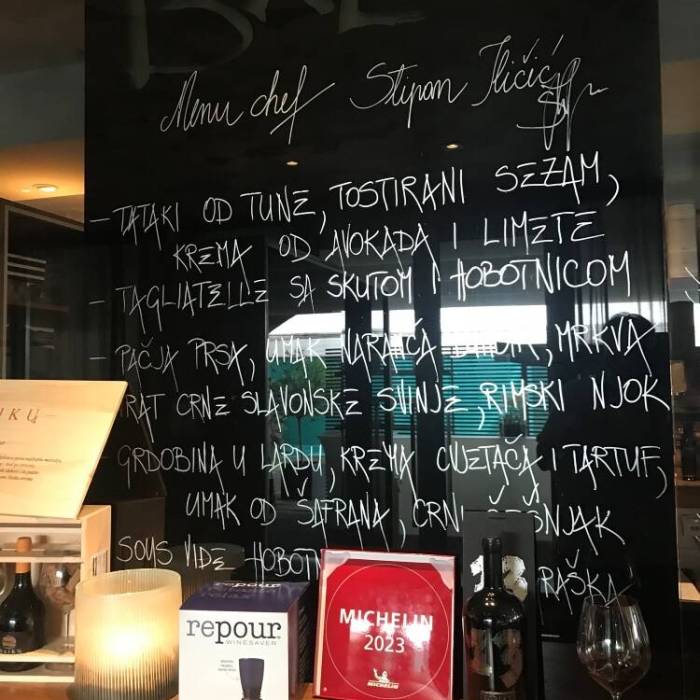 Menu chef Stipan Iličić
- TATAKI OD TUNE, TOSTIRANI SEZAM,
KREMA OD AVOKADA I LIMETE
- TAGLIATELLE SA SKUTOM I HOBOTNICOM
- PAČJA PRSA, UMAK NARANČA MRKVA
RAT CRNE SLAVONSKE SVINJE, RIMSKI NJOK
- GRDOBINA U LARDU, KREMA CVJETAČA I TARTUF,
UMAK OD ŠAFRANA, CRNI ČEŠNJAK
SOUS VIDE HOBOTN
RAŠKA
repour
WINESAVER
MICHELIN
2023